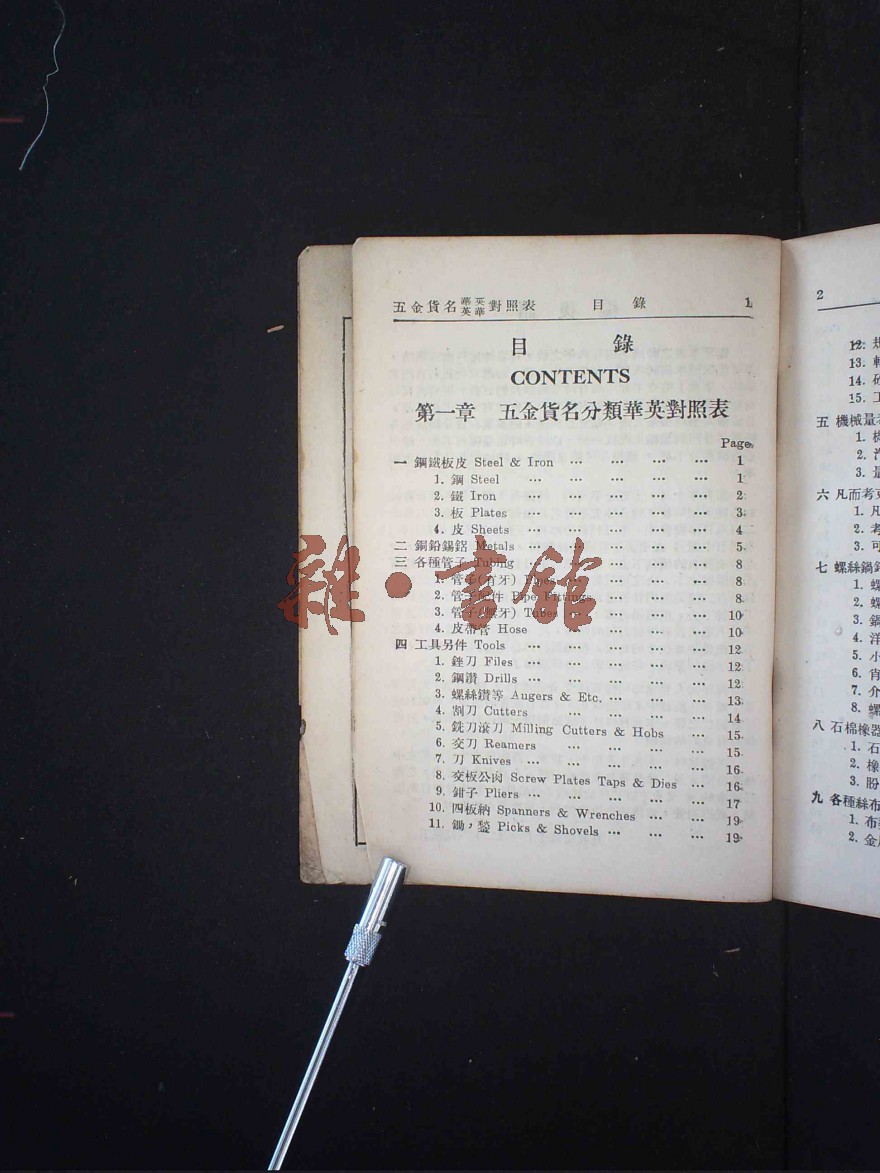 五金貨名華英英華對照表 目錄 1
目錄
CONTENTS
第一章 五金貨名分類華英對照表
Page
一 鋼鐵板皮 Steel & Iron ... ... ... ... 1
1. 鋼 Steel ... ... ... ... ... 1
2. 鐵 Iron ... ... ... ... ... 2
3. 板 Plates ... ... ... ... ... 3
4. 皮 Sheets ... ... ... ... ... 4
二 銅鉛錫鋁 Metals ... ... ... ... ... 5
三 各種管子 Tubing ... ... ... ... 8
1. 管子(有牙) Pipes ... ... ... ... 8
2. 管子配件 Pipe Fittings ... ... ... 8
3. 管子(無牙) Tubes ... ... ... ... 10
4. 皮帶管 Hose ... ... ... ... 10
四 工具另件 Tools ... ... ... ... ... 12
1. 銼刀 Files ... ... ... ... ... 12
2. 鋼鑽 Drills ... ... ... ... ... 12
3. 螺絲鑽等 Augers & Etc. ... ... ... 13
4. 割刀 Cutters ... ... ... ... 14
5. 銑刀滾刀 Milling Cutters & Hobs ... 15
6. 交刀 Reamers ... ... ... ... 15
7. 刀 Knives ... ... ... ... ... 16
8. 交板公肉 Screw Plates Taps & Dies ... 16
9. 鉗子 Pliers ... ... ... ... ... 17
10. 四板納 Spanners & Wrenches ... ... 19
11. 鋤，鍫 Picks & Shovels ... ... ... 19
2
12.
13.
14.
15. 工
五 機械量
1.
2. 汽
3. 量
六 凡而考克
1. 凡
2. 考
3. 可
七 螺絲鍋釘
1. 螺
2. 螺
3. 鍋
4. 洋
5. 小
6. 肖
7. 介
8. 螺
八 石棉橡器
1. 石
2. 橡
3. 盼
九 各種絲布
1. 布
2. 金
雜·書館